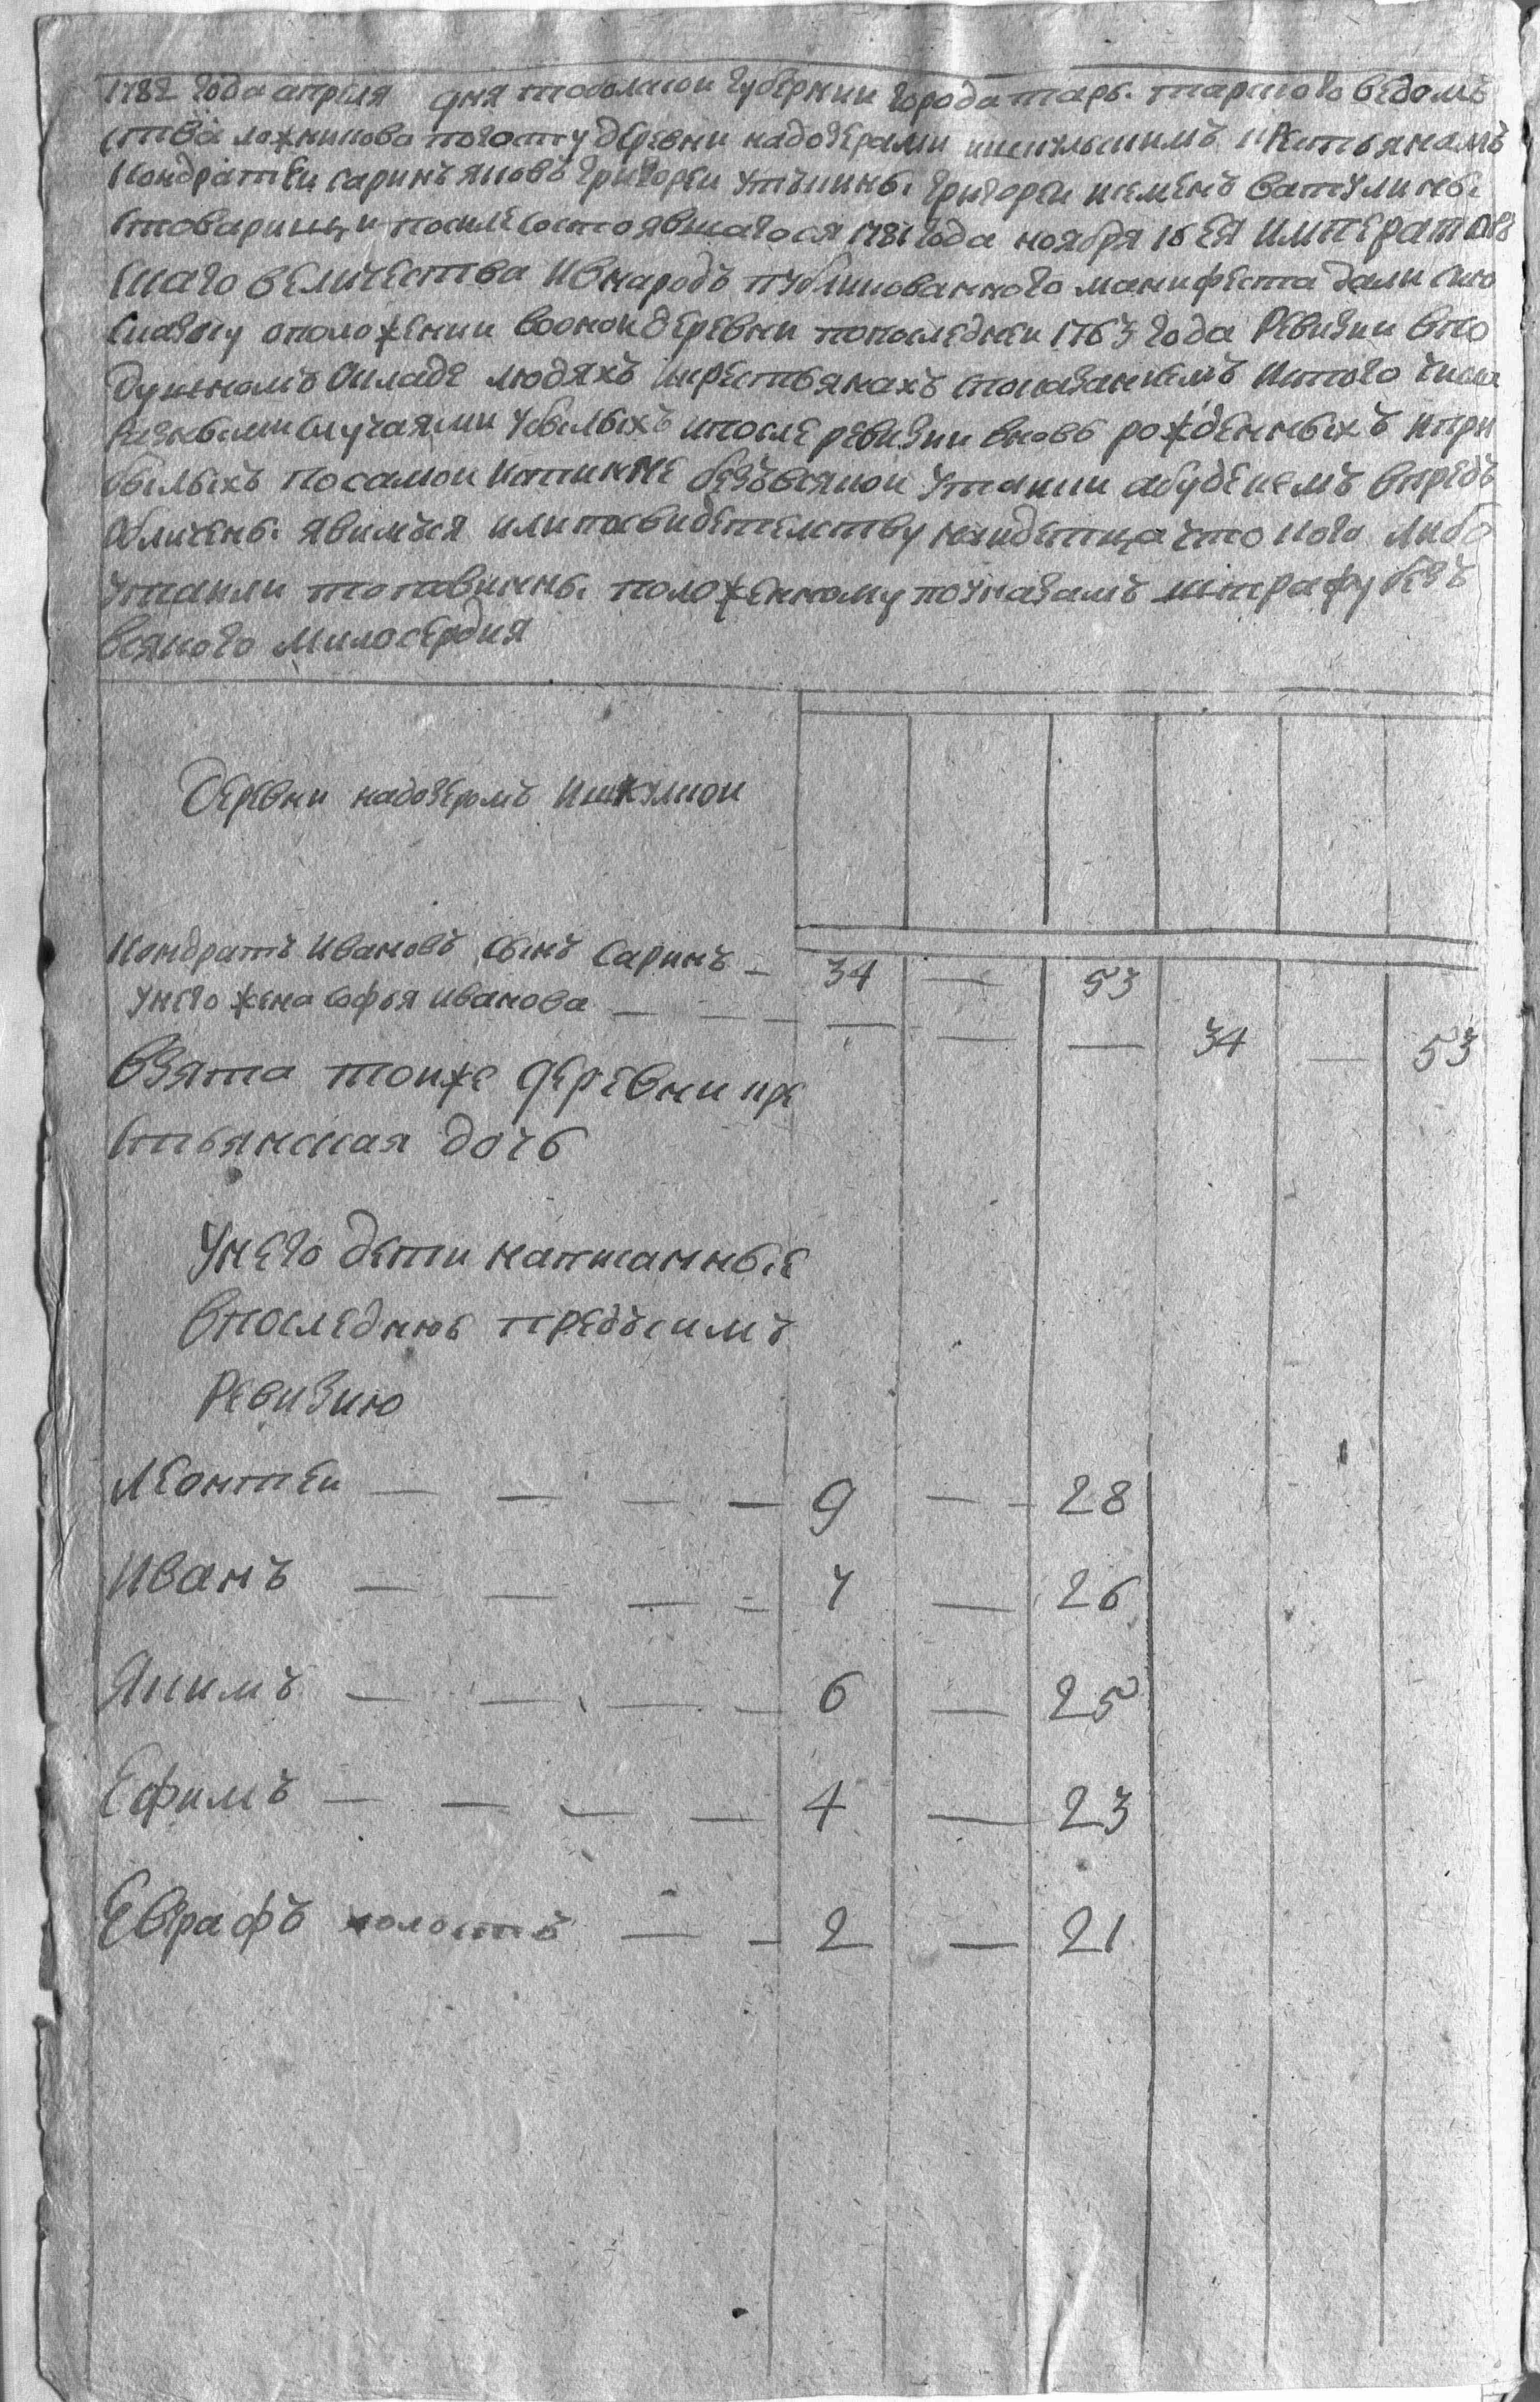 1782 года апреля дня тобольскои губернии города тары тарского ведомъ
ства ложникова погосту деревни надозерами ишкульскимъ крестьянамъ
Кондратеи саринъ яковъ григореи утъкины григореи исеменъ ватулины
стоварищи после состоявшагося 1781 года ноября 16 ея императоръ
скаго величества ивнародъ публикованного манифеста дали сию
сказку ополоѫении воонои деревни попоследнеи 1763 года ревизии впо
душеномъ окладе людяхъ икрестьянахъ споказаниемъ истого числа
разными случаями убылыхъ ипосле ревизии вновь роѫденныхъ ипри
былыхъ посамои истинне безъвсякои утаики абуде чемъ впредь
обличены явимъся илипосвидетелству наидетца что кого либо
утаили топовинны полоѫенному поуказамъ штрафу безъ
всякого милосердия
Деревни надозеромъ Ишкулскои
Кондратъ Ивановъ сынъ Саринъ — 34 — 53
Унего ѫена софья иванова — — — — — — 34 — 53
Взята тоиѫе деревни кре
стьянская дочь
Унего дети написанные
впоследнюю предъсимъ
Ревизию
Леонтеи — — — — 9 — - 28
Иванъ — — — = 7 — 26
Якимъ — — — — 6 — 25
Ефимъ — — — — 4 — 23
Евграфъ холостъ — — 2 — 21